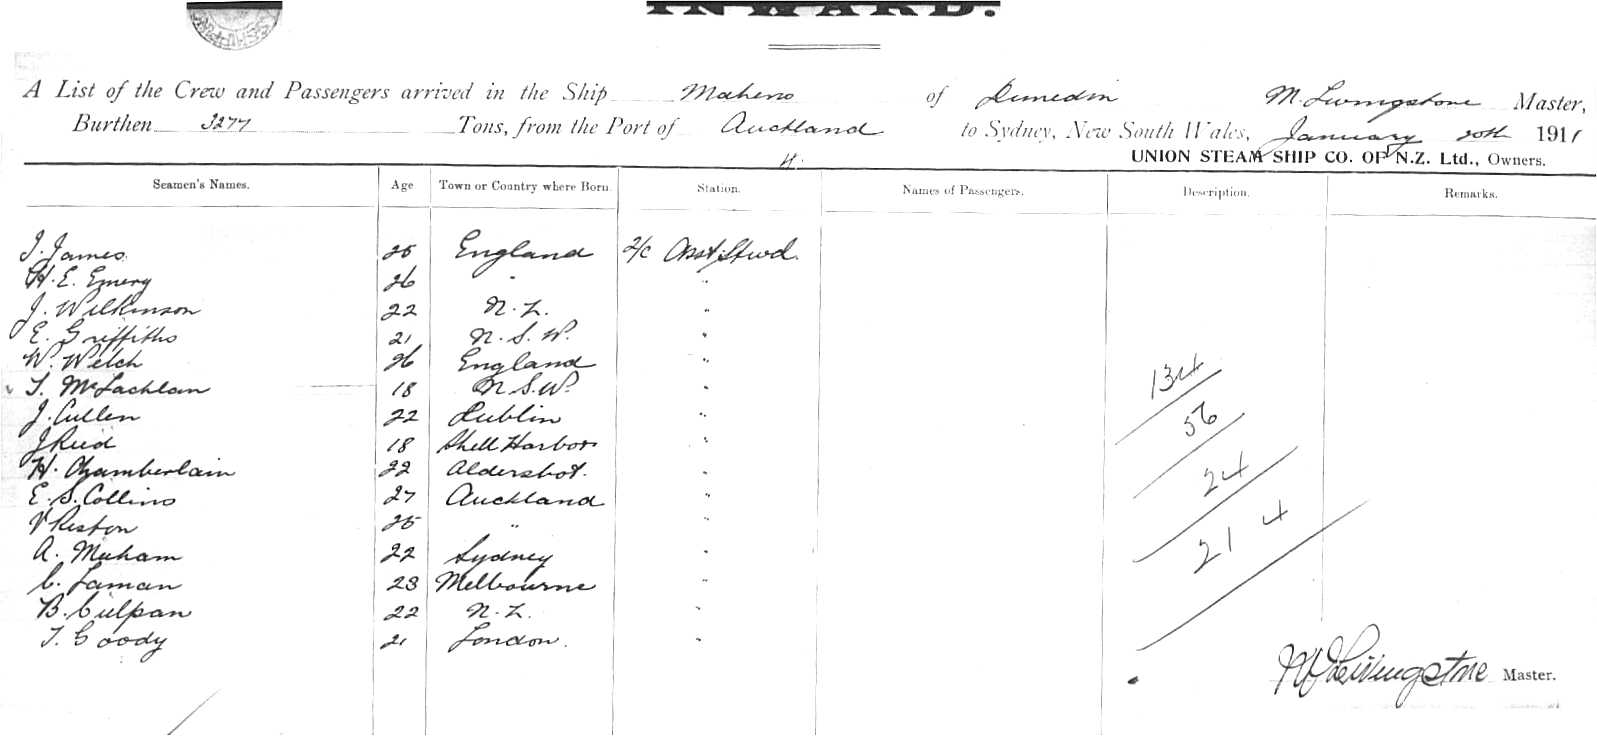 INWARD.
A List of the Crew and Passengers arrived in the Ship Maheno of Dunedin M. Livingstone Master,
Burthen 3277 Tons, from the Port of Auckland to Sydney, New South Wales, January 20th 1911
4. UNION STEAM SHIP CO. OF N.Z. Ltd., Owners.
Seamen's Names. Age Town or Country where Born. Station. Names of Passengers. Description. Remarks.
J. James 25 England 2/c Asst Stwd.
H. E. Emery 26 " "
J. Wilkinson 22 N.Z. "
E. Griffiths 21 N.S.W. "
W. Welch 26 England "
T. McLachlan 18 N.S.W. "
J. Cullen 22 Dublin "
J Reid 18 Shell Harbor "
H. Chamberlain 22 Aldershot. "
E. S. Collins 27 Auckland "
V Reston 25 " "
A. Meeham 22 Sydney "
C. Laman 23 Melbourne "
B. Culpan 22 N.Z. "
T. Goody 21 London. "
134
56
24
214
M Livingstone Master.